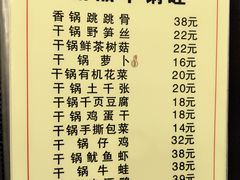 香锅跳跳骨 38元
干锅野笋丝 22元
干锅鲜茶树菇 22元
干锅萝卜 16元
干锅有机花菜 20元
干锅土千张 20元
干锅千页豆腐 18元
干锅鸡蛋干 18元
干锅手撕包菜 14元
干锅仔鸡 32元
干锅鱿鱼虾 38元
干锅牛蛙 38元